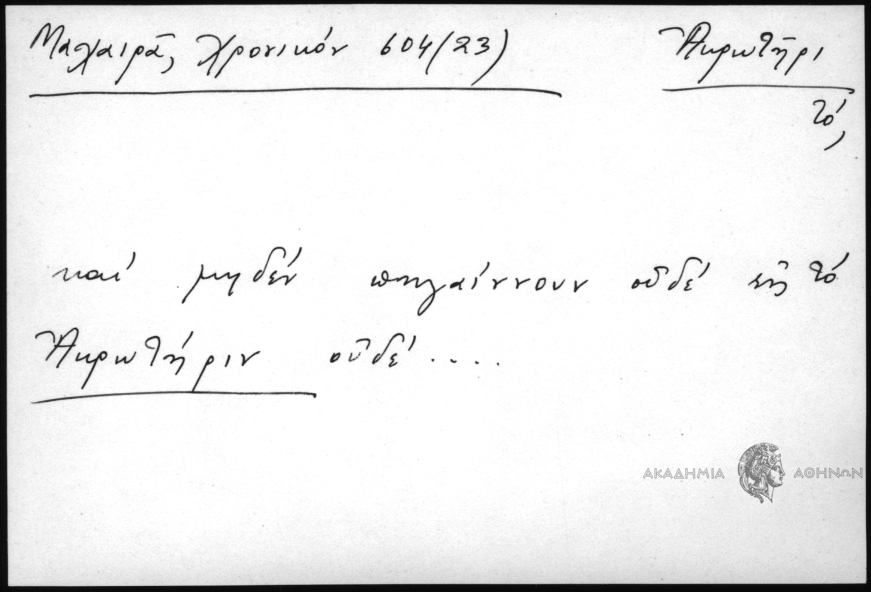 Μαχαιρᾶ, Χρονικόν 604/23)
Ἀκρωτῆρι
τό,
καί μηδέν πηγαίννουν οὐδέ εἰς τό
Ἀκρωτήριν οὐδέ....
ΑΚΑΔΗΜΙΑ ΑΘΗΝΩΝ